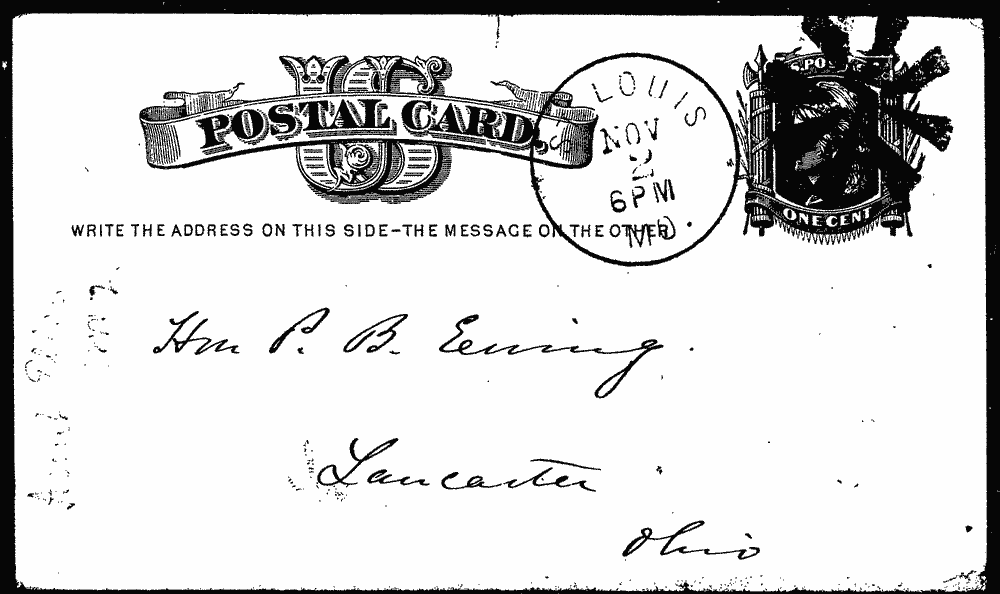 US
POSTAL CARD.
ST. LOUIS
NOV
2
6 PM
MO.
U.S. POSTAGE
ONE CENT
WRITE THE ADDRESS ON THIS SIDE–THE MESSAGE ON THE OTHER
Hon P. B. Ewing.
Lancaster
Ohio